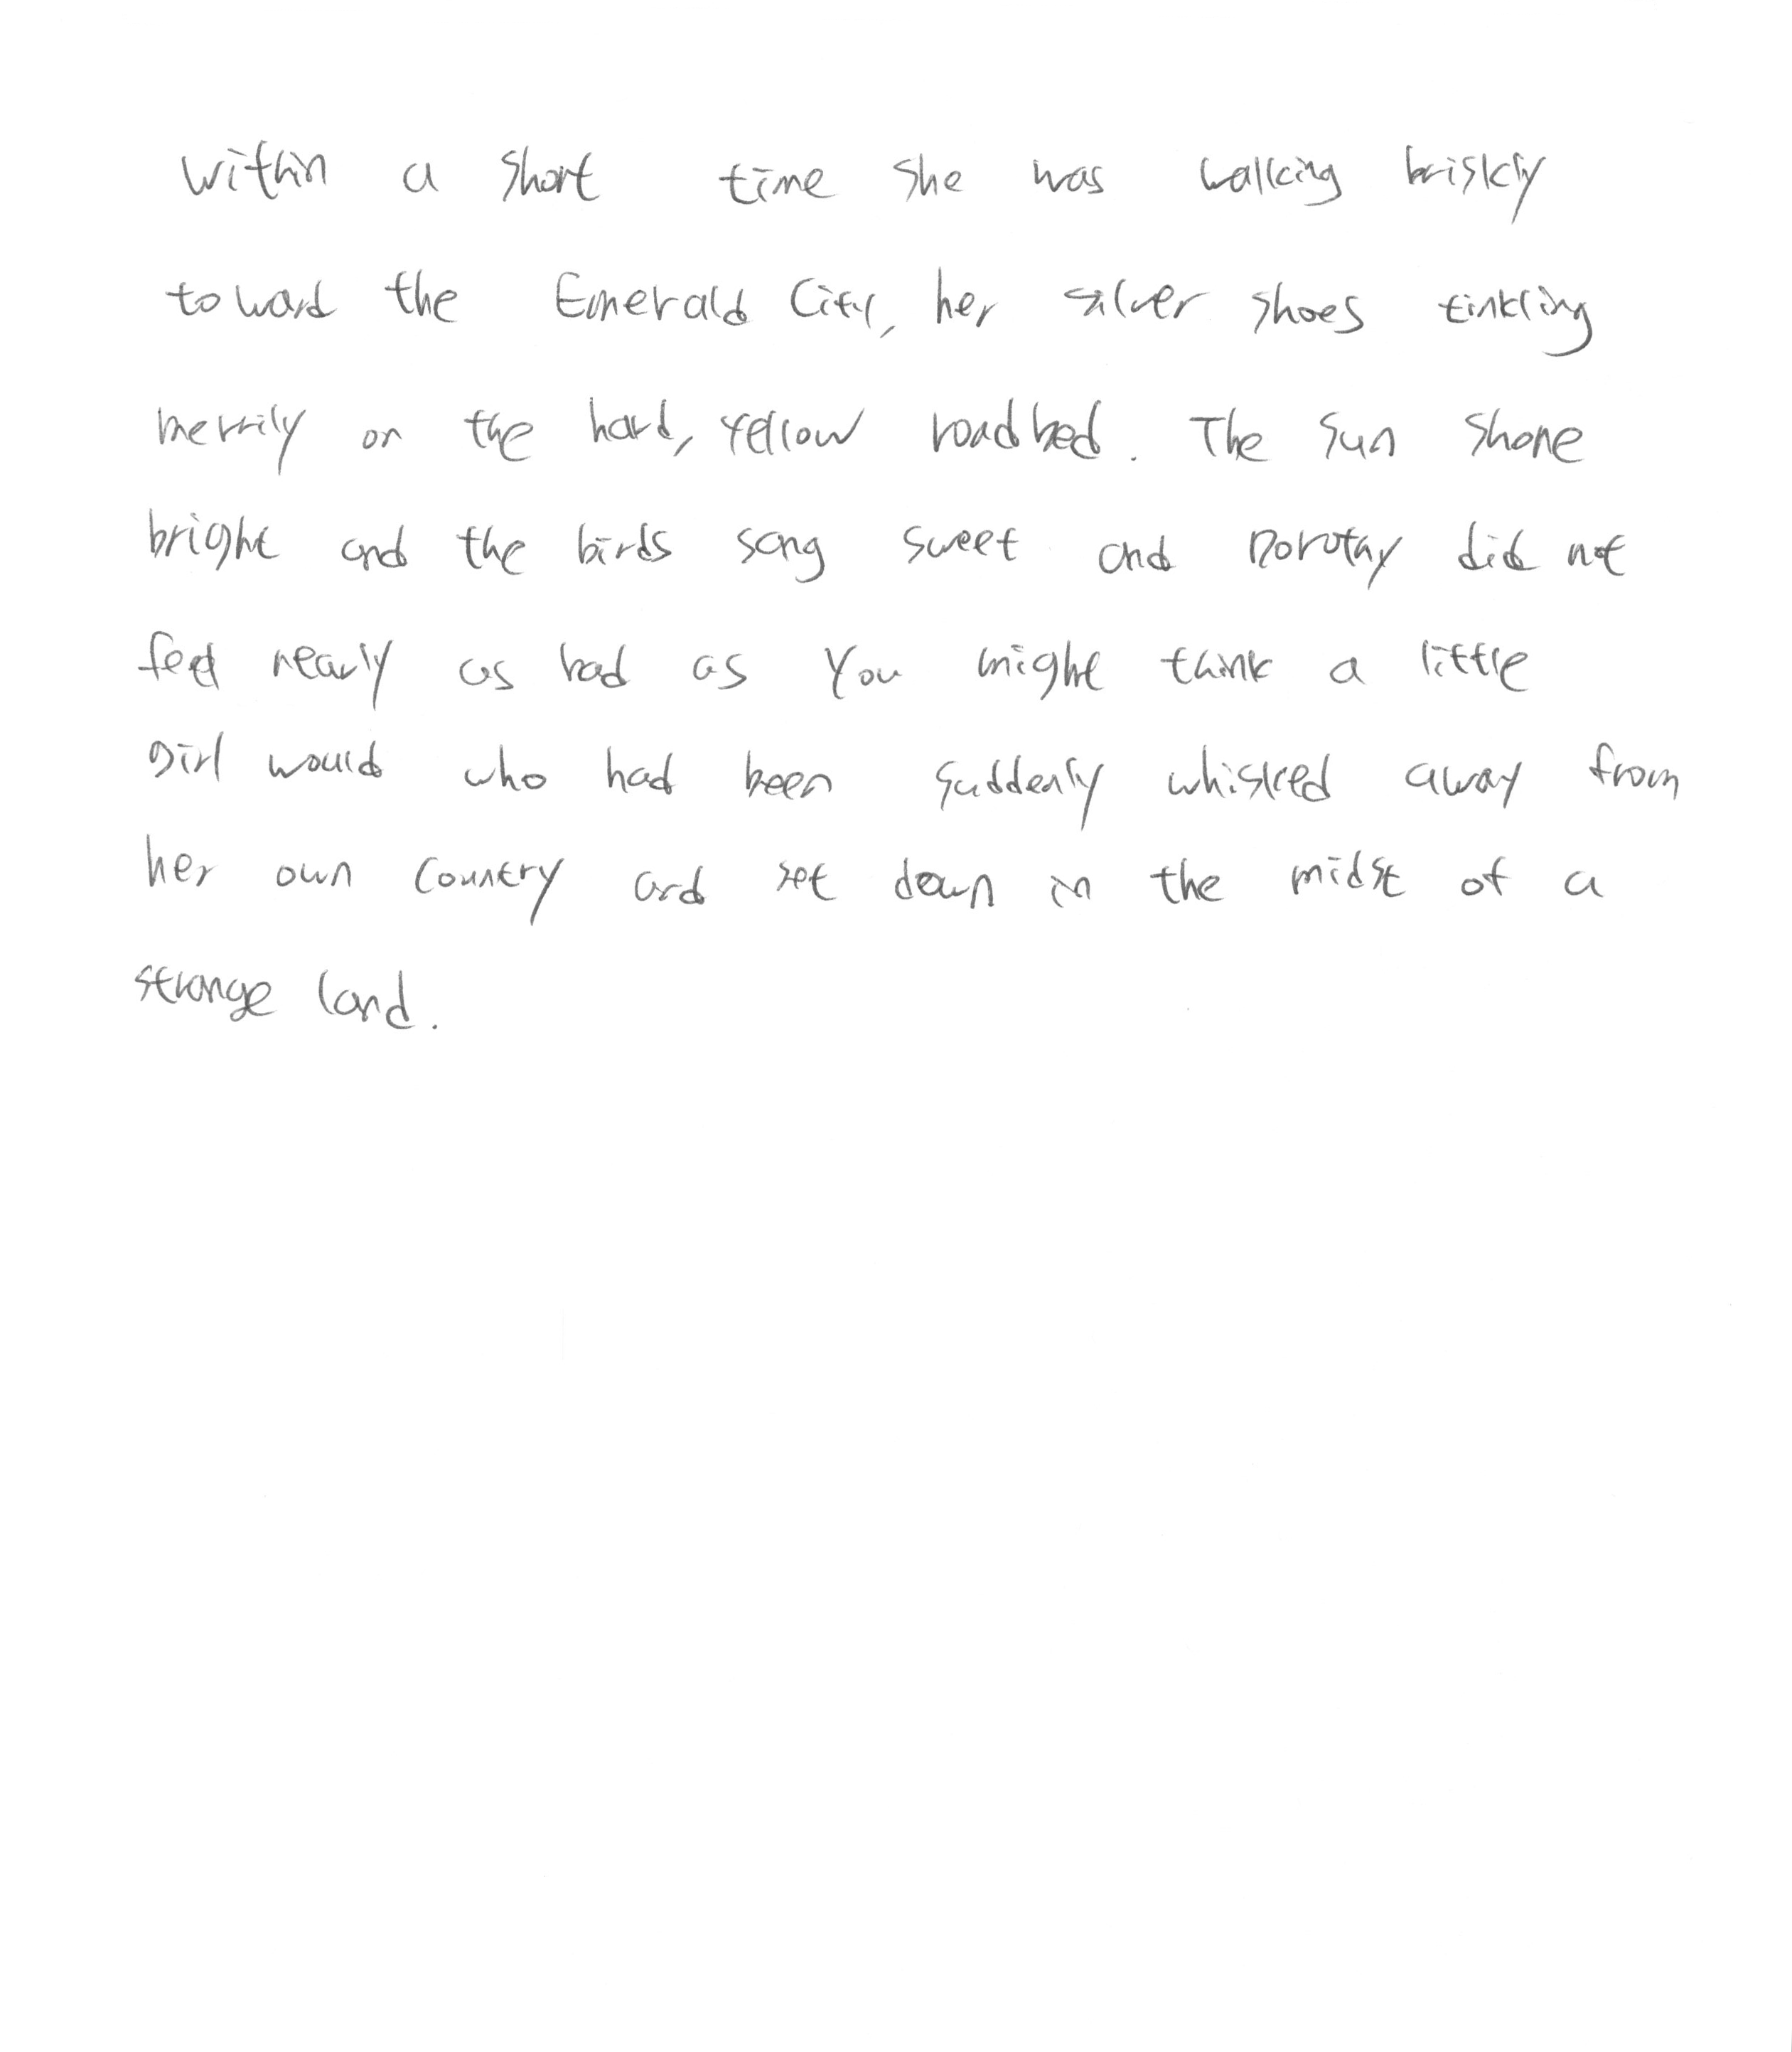 Within a short time she was walking briskly
toward the Emerald City, her silver shoes tinkling
merrily on the hard, yellow roadbed. The sun shone
bright and the birds sang sweet and Dorothy did not
feel nearly as bad as you might think a little
girl would who had been suddenly whisked away from
her own country and set down in the midst of a
strange land.